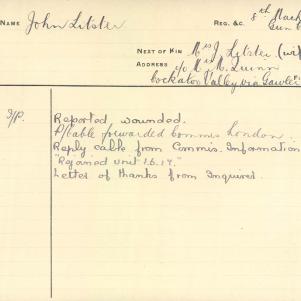 NAME John Litster REG. &C. 8th Mach
Gun
NEXT OF KIN Mrs J. Litster (wif
ADDRESS c/o Mrs M. Quinn
Cockatoo Valley via Gawler
Reported wounded.
P/Cable forwarded Commis London.
Reply cable from Commis. Information
"Rejoined unit 1.6.17."
Letter of thanks from Inquirer.